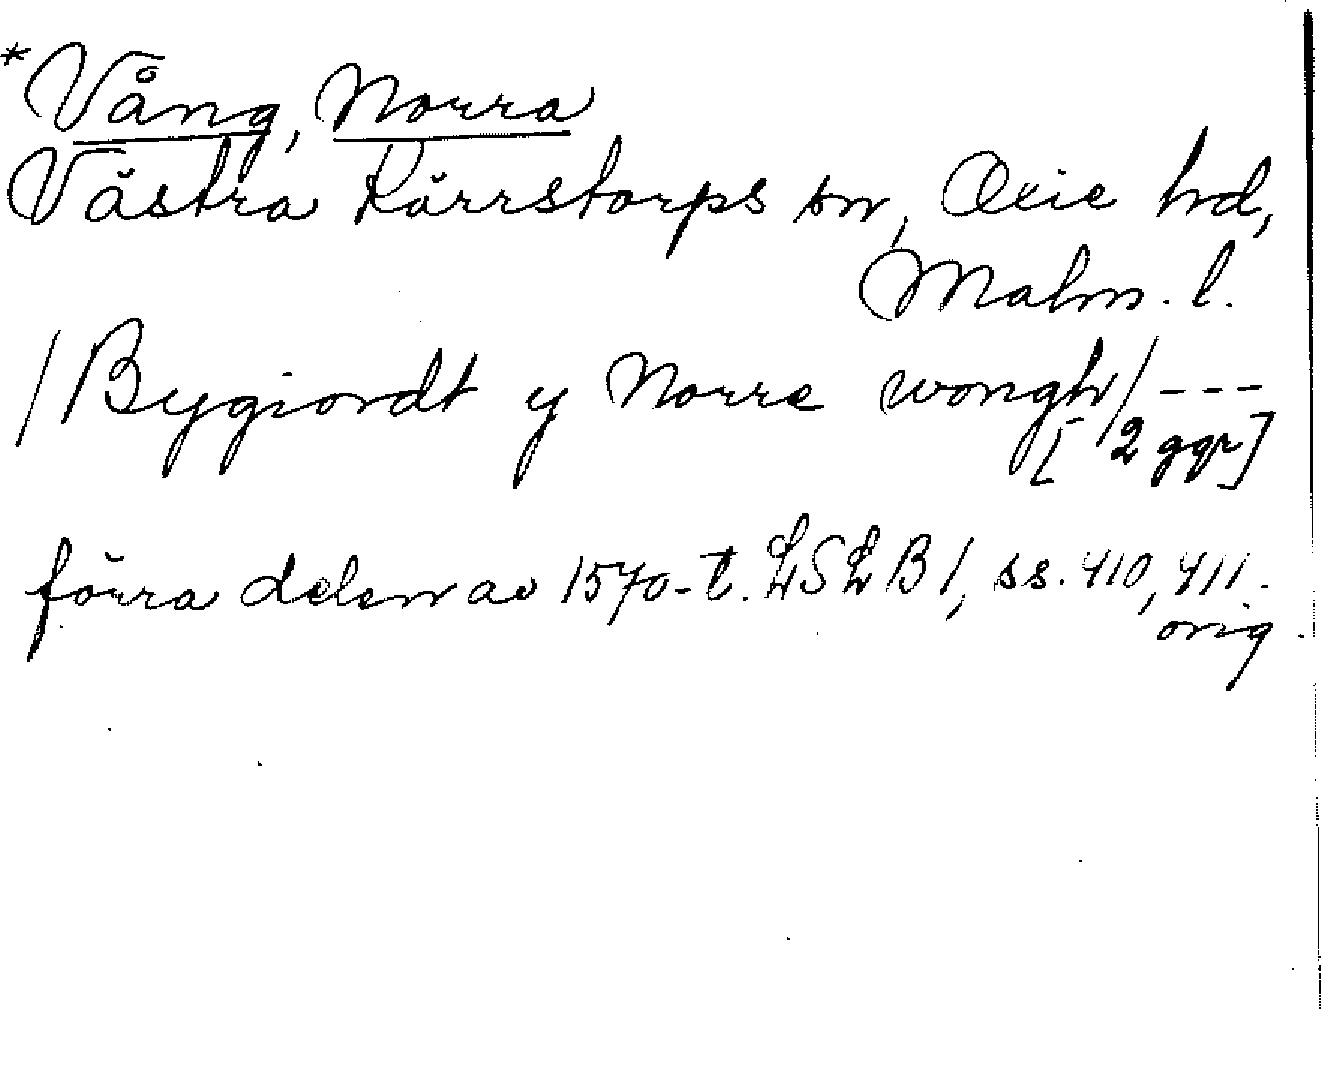 *Vång, Norra
Västra Kärrstorps sn, Oxie hd,
Malm. l.
/Bygiordt y Norre wongh/ ---
[2 ggr]
förra delen av 1570-t. LSLB 1, ss. 410, 411.
orig.